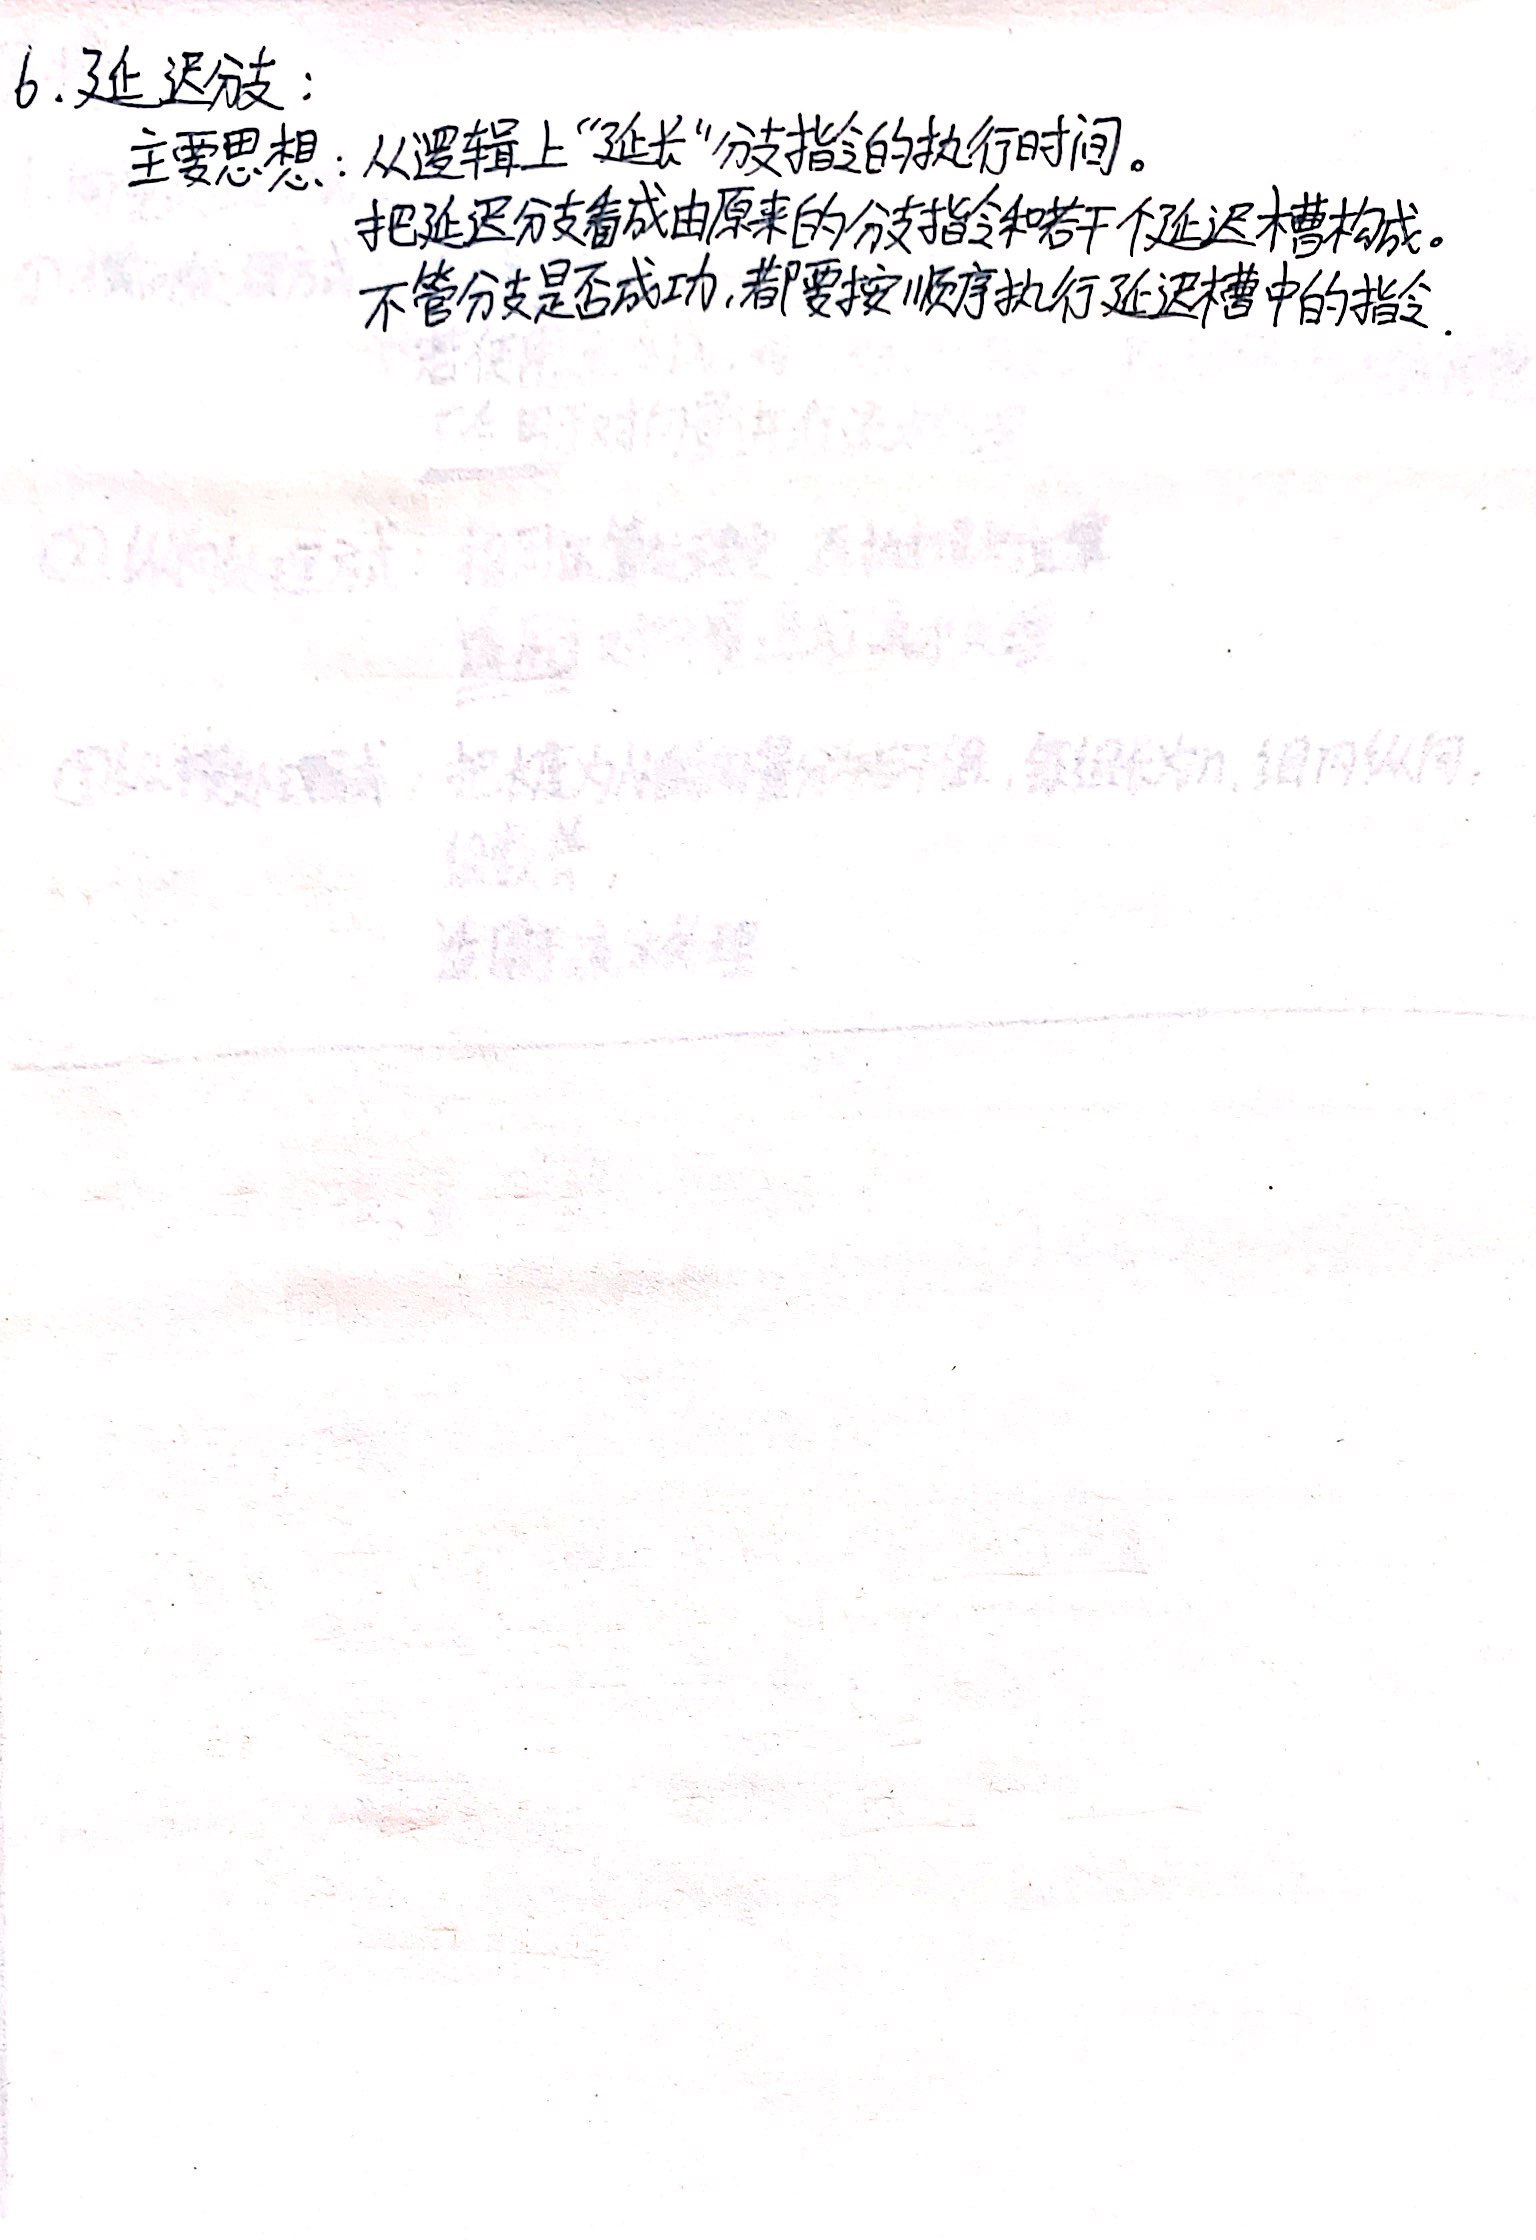 6.延迟分支：
主要思想：从逻辑上“延长”分支指令的执行时间。
把延迟分支看成由原来的分支指令和若干个延迟槽构成。
不管分支是否成功,都要按顺序执行延迟槽中的指令.